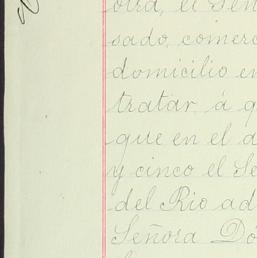 otra, el Señ
sado, comerc
domicilio en
tratar, á q
que en el a
y cinco el Se
del Rio ad
Señora Do